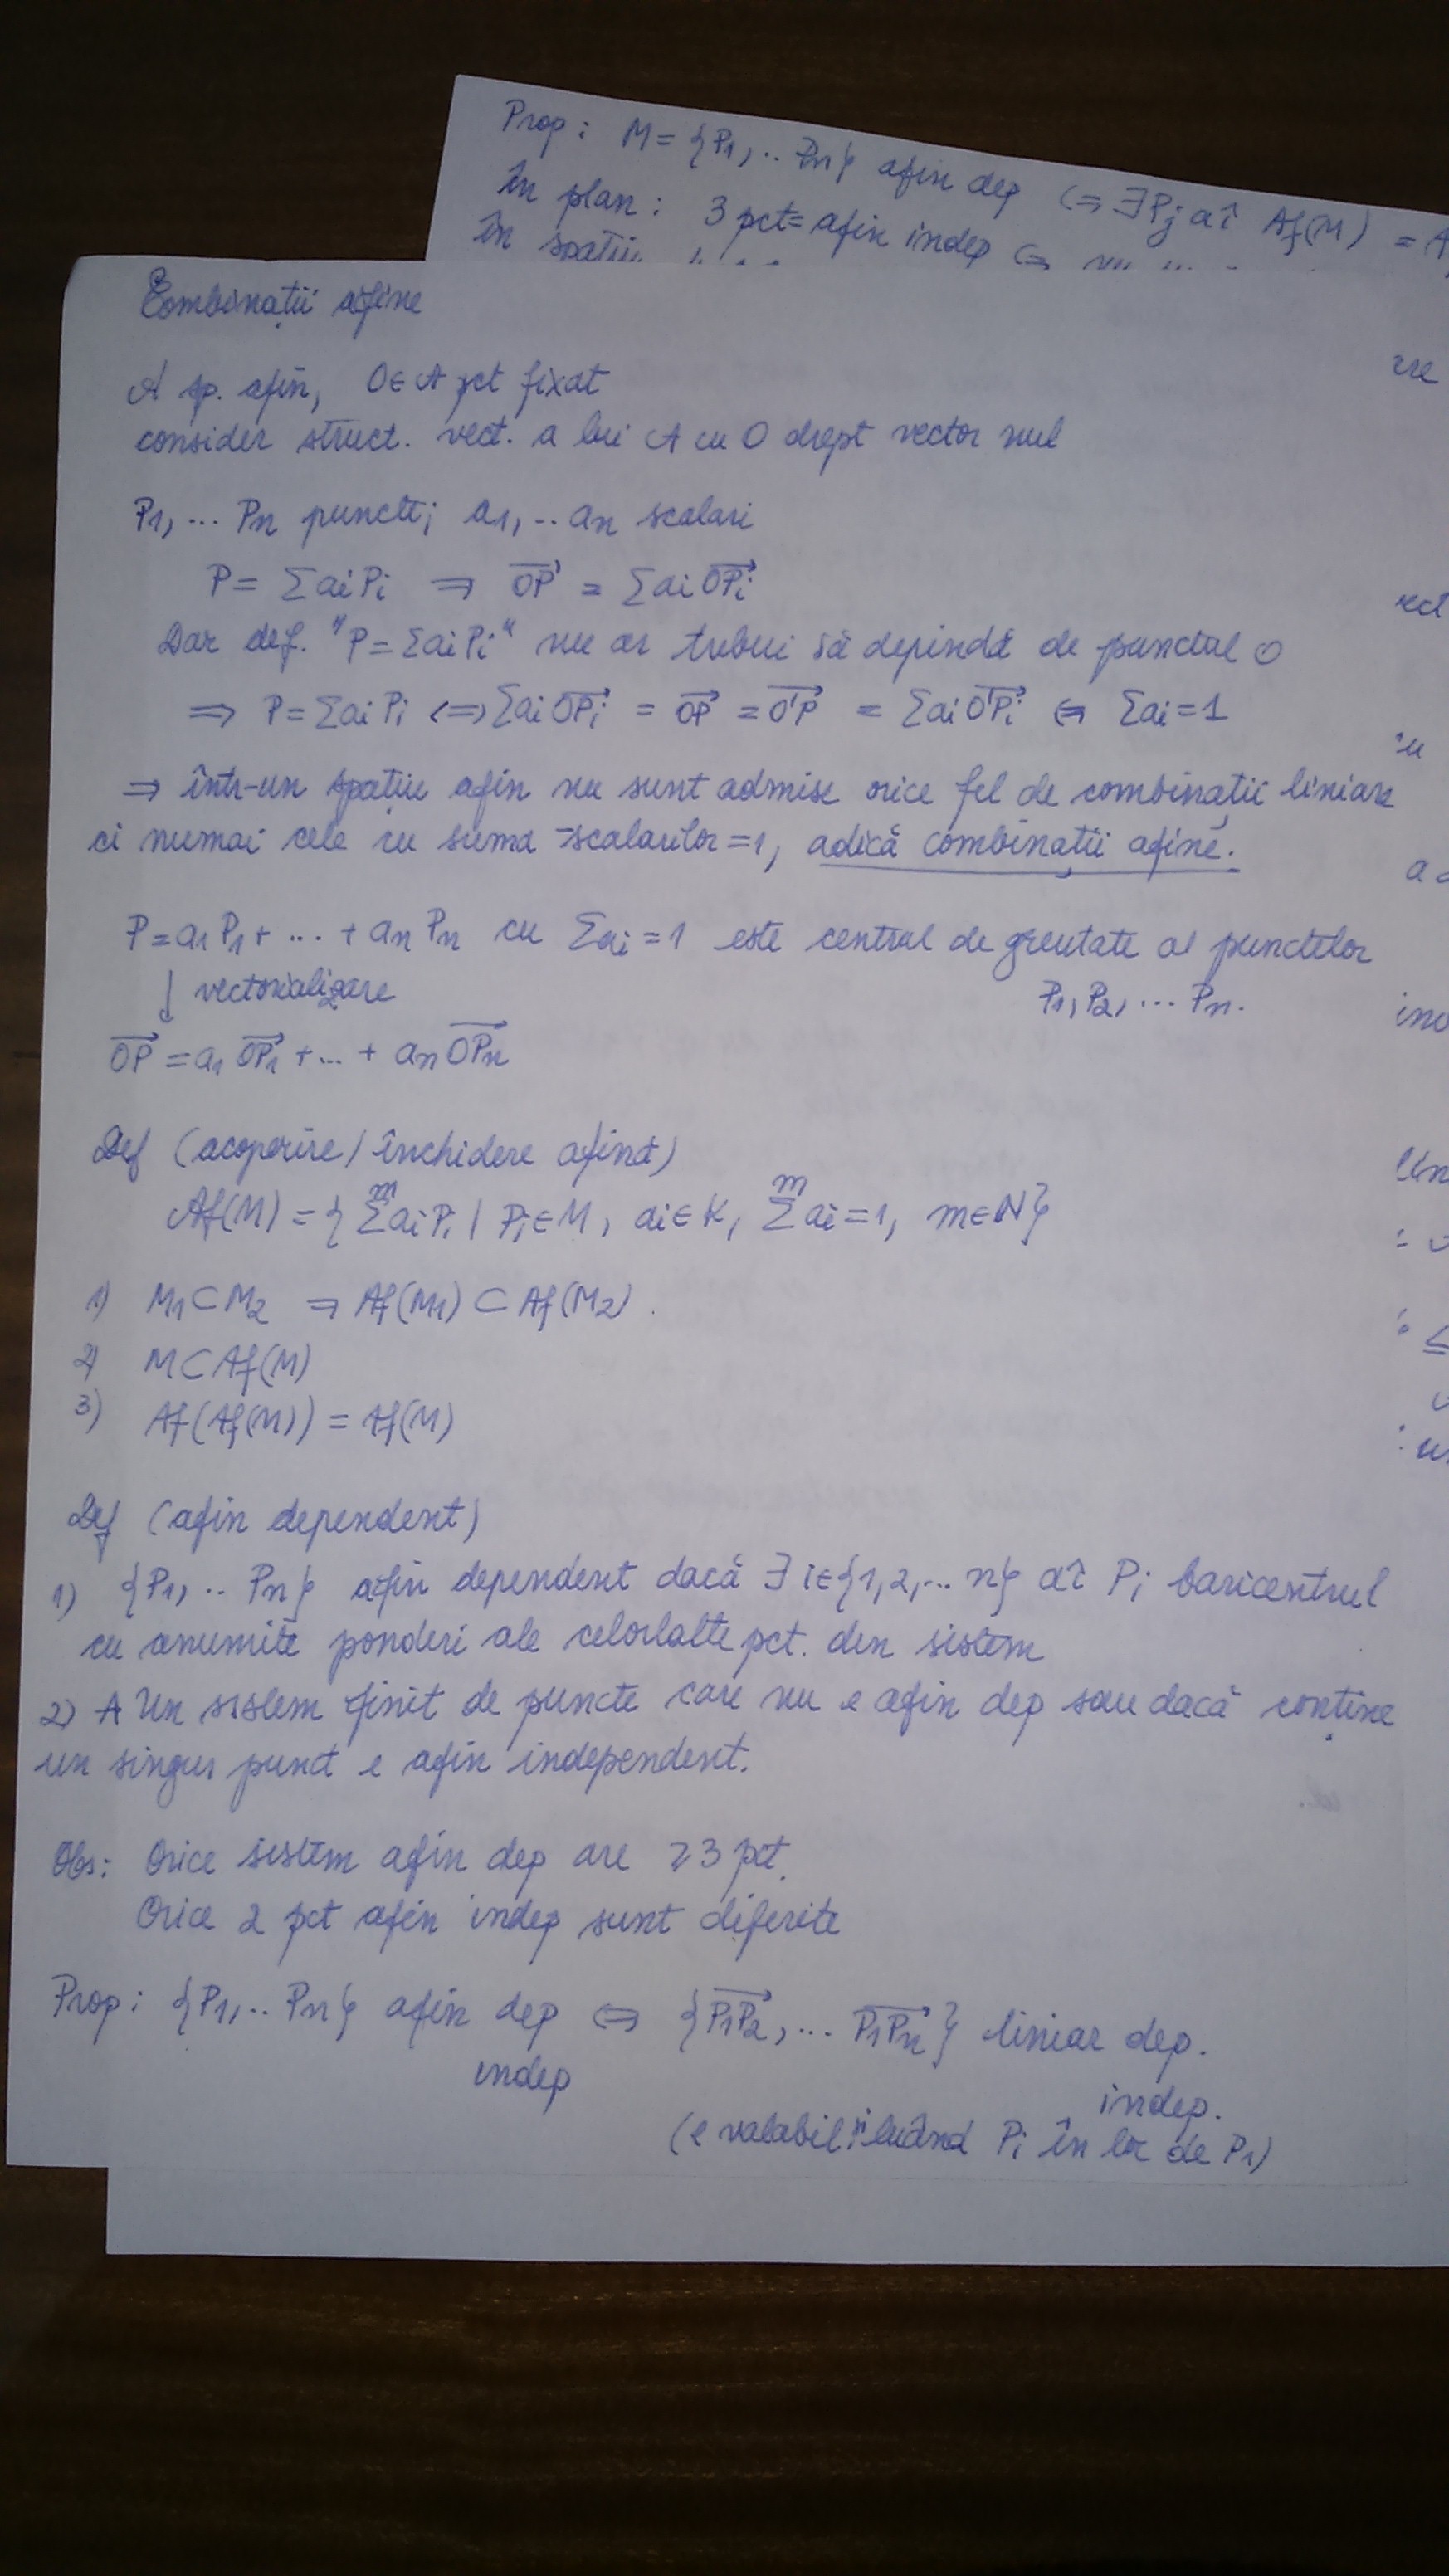 Prop: M = {P1, .. Pn} afin dep ⇔ ∃ Pj aî Af(M) = A
În plan: 3 pct = afin indep ⇔
În spațiu
Combinații afine
A sp. afin, O∈A pct fixat
consider struct. vect. a lui A cu O drept vector nul
P1, ... Pn puncte; a1, .. an scalari
P = Σ ai Pi ⇒ OP = Σ ai OPi
Dar def. "P = Σ ai Pi" nu ar trebui să depindă de punctul O
⇒ P = Σ ai Pi ⇔ Σ ai OPi = OP = O'P = Σ ai O'Pi ⇔ Σ ai = 1
⇒ într-un spațiu afin nu sunt admise orice fel de combinații liniare
ci numai cele cu suma scalarilor = 1, adică combinații afine.
P = a1 P1 + ... + an Pn cu Σ ai = 1 este centrul de greutate al punctelor
P1, P2, ... Pn.
↓ vectorializare
OP = a1 OP1 + ... + an OPn
Def (acoperire / închidere afină)
Af(M) = { Σ^m ai Pi | Pi ∈ M, ai ∈ K, Σ^m ai = 1, m ∈ N }
1) M1 ⊂ M2 ⇒ Af(M1) ⊂ Af(M2).
2) M ⊂ Af(M)
3) Af(Af(M)) = Af(M)
Def (afin dependent)
1) {P1, .. Pn} afin dependent dacă ∃ i ∈ {1, 2, ... n} aî Pi baricentrul
cu anumite ponderi ale celorlalte pct. din sistem
2) A Un sistem finit de puncte care nu e afin dep sau dacă conține
un singur punct e afin independent.
Obs: Orice sistem afin dep are ≥ 3 pct.
Orice 2 pct afin indep sunt diferite
Prop: {P1, .. Pn} afin dep ⇔ {P1P2, ... P1Pn} liniar dep.
indep indep.
(e valabil și luând Pi în loc de P1)